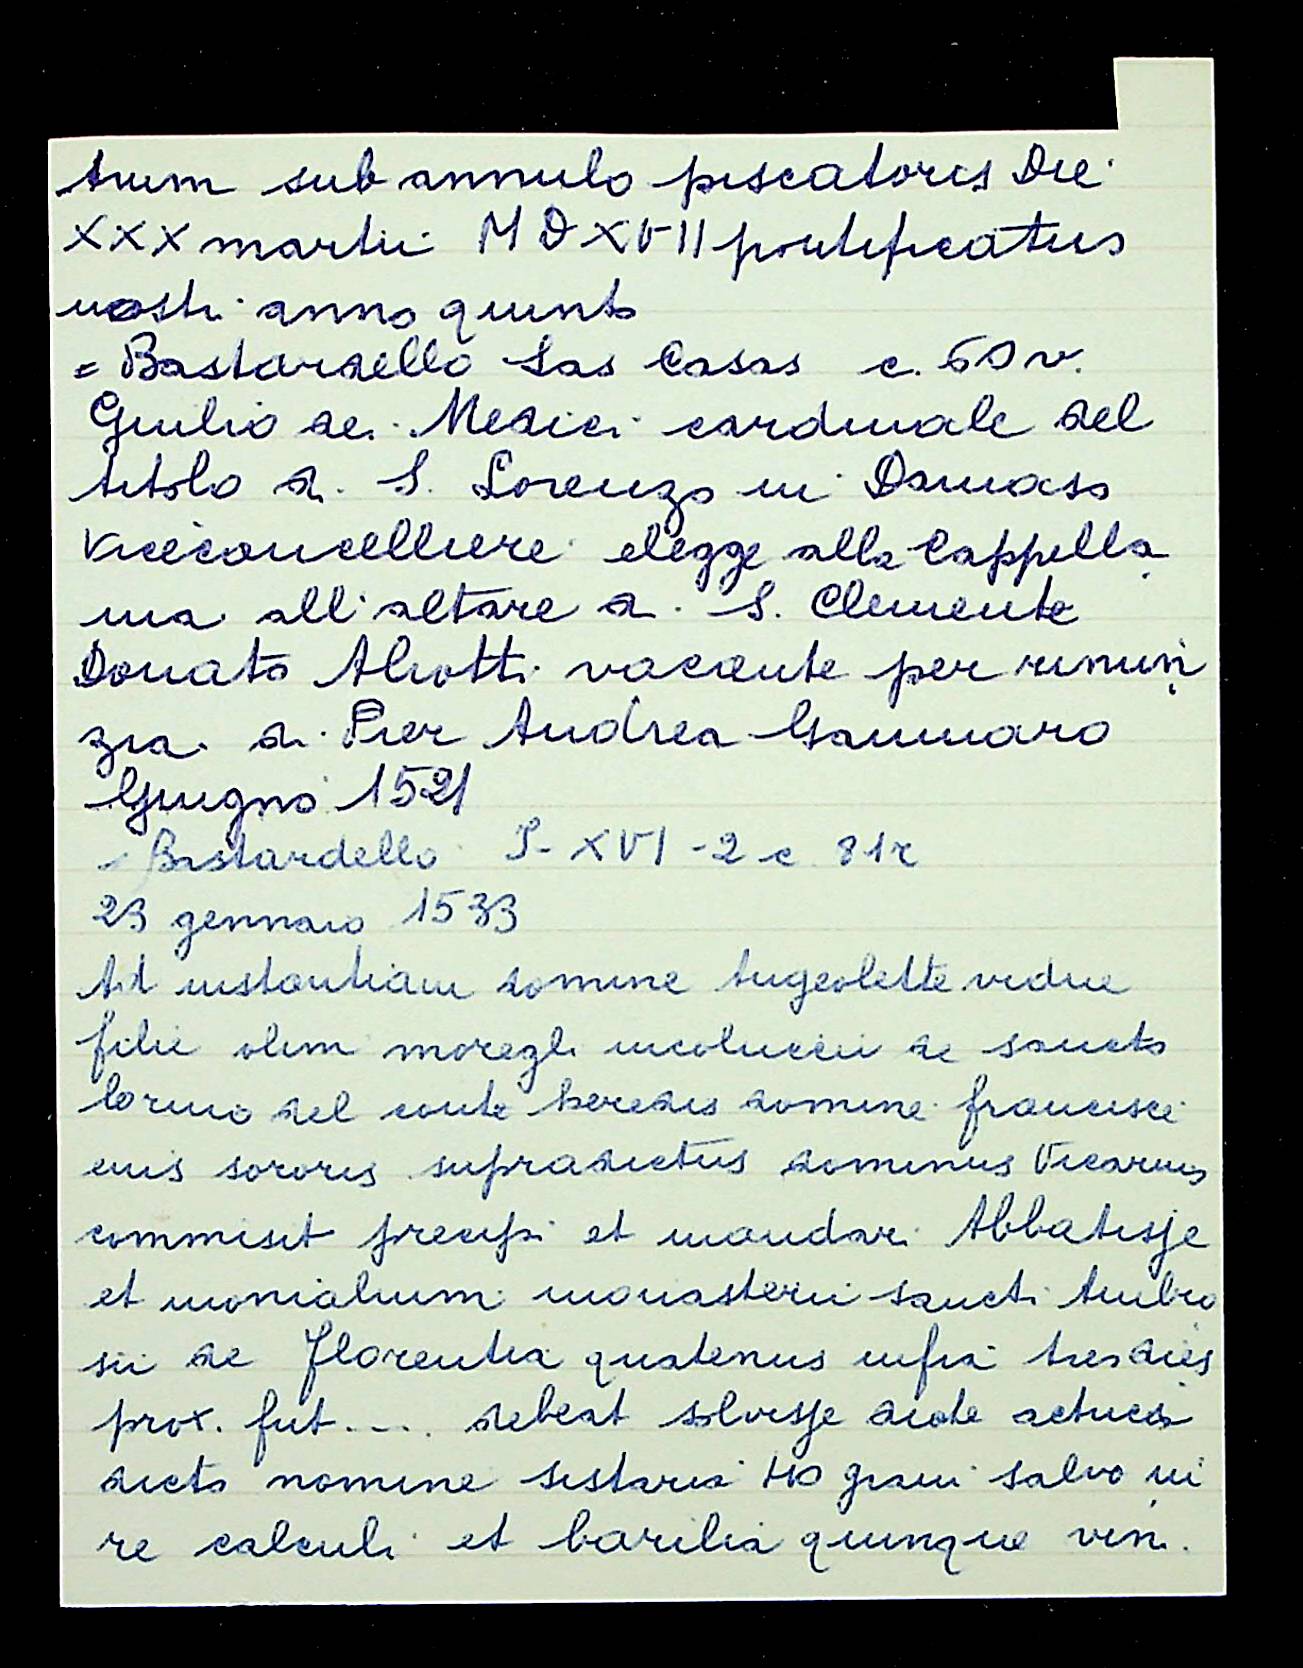 trum sub annulo piscatoris Die
XXX martii MDXVII pontificatus
nostri anno quinto
= Bastardello Las Casas c. 60 v.
Giulio dei Medici cardinale del
titolo di S. Lorenzo in Damaso
Vicecancelliere elegge alla Cappella
nia all'altare di S. Clemente
Donato Aliotti vacante per rinun
zia di Pier Andrea Gammaro
Giugno 1521
- Bastardello P- XVI - 2 c 81r
23 gennaio 1533
Ad instantiam domine Angelette vidue
filie olim
 de sancto
 del conte heredis domine francisce
eius sororis supradictus dominus Vicarius
commisit precipi et mandari Abbatisse
et monialium monasterii sancti Ambro
sii de Florentia quatenus infra tres dies
prox. fut.... debeat solvisse dicte actrici
dicto nomine sistaria grani salvo iu
re calculi et barilia quinque vini.